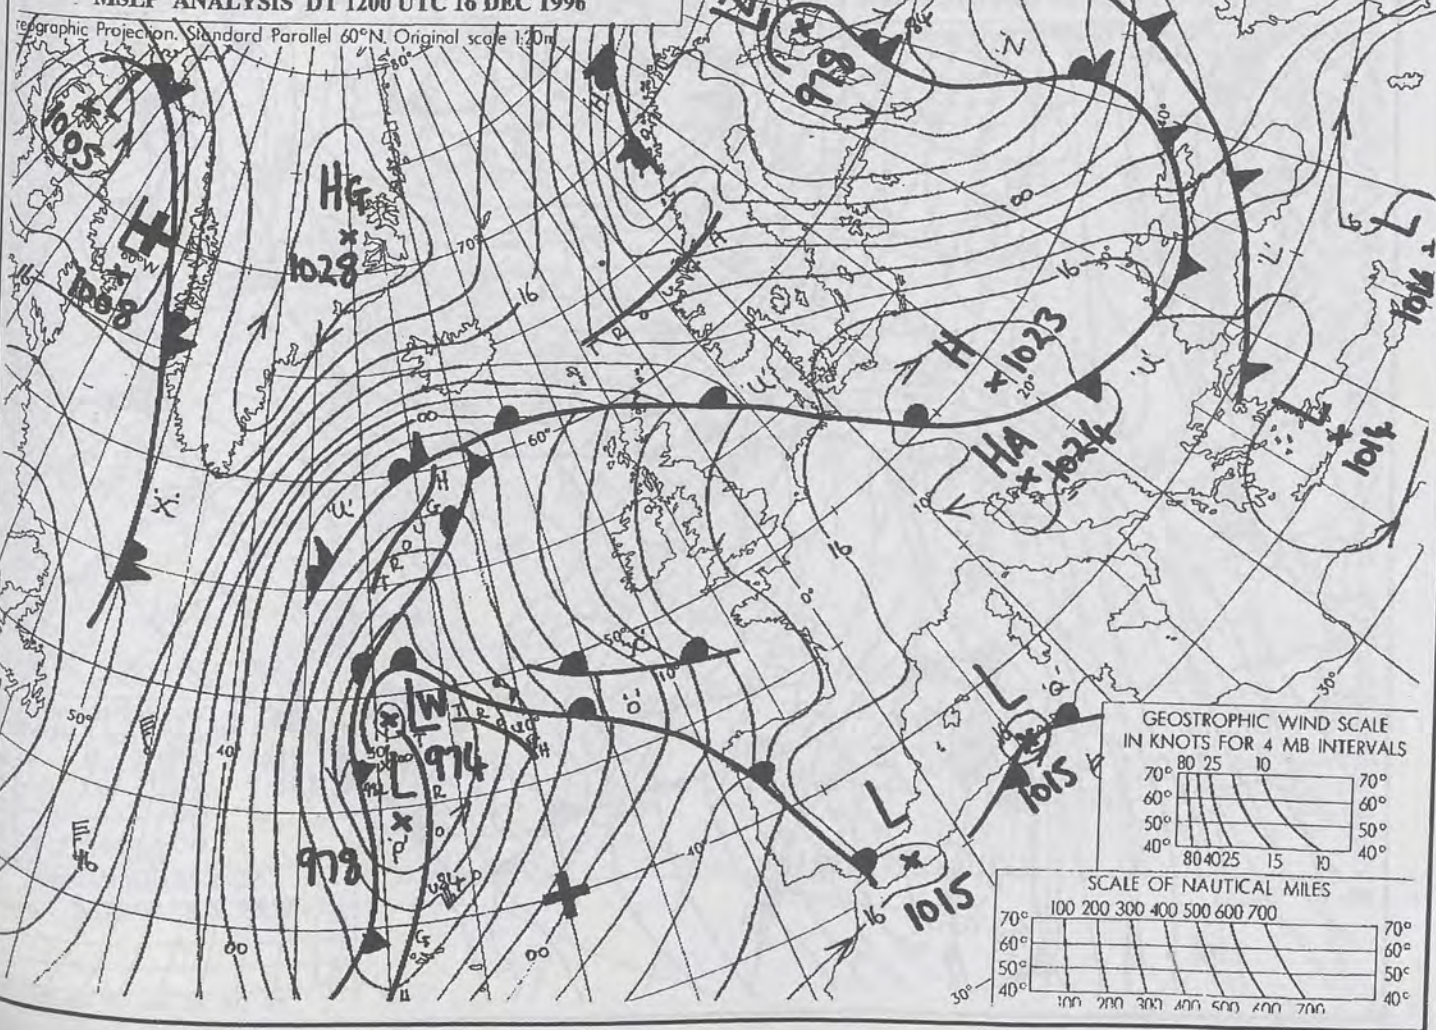 MSLP ANALYSIS DT 1200 UTC 16 DEC 1996
Projection. Standard Parallel 60°N. Original scale 1:20m
80°
L
1005
L
1008
HG
1028
978
'N'
00
70°
16
16
H
1023
20°
HA
1024
L
1016
L
1014
00
60°
TROUGH
10
16
0°
50°
10°
50°
40°
LW
974
L
978
'P'
TROUGH
40°
L
1015
16
L
'Q'
1015
00
00
30°
30°
GEOSTROPHIC WIND SCALE
IN KNOTS FOR 4 MB INTERVALS
80 25 10
70° 70°
60° 60°
50° 50°
40° 40°
80 40 25 15 10
SCALE OF NAUTICAL MILES
100 200 300 400 500 600 700
70° 70°
60° 60°
50° 50°
40° 40°
100 200 300 400 500 600 700